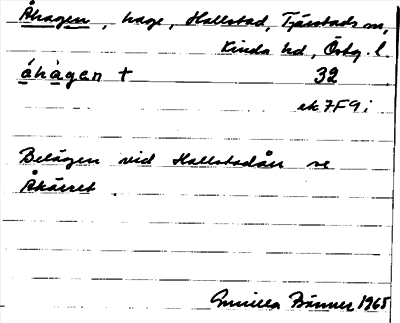 Åhagen, hage, Hallstad, Tjärstads sn,
Kinda hd, Östg. l.
åhàgen + 32
ek 7F9i
Belägen vid Hallstadån se
Åkärret.
Gunilla Bänner 1965